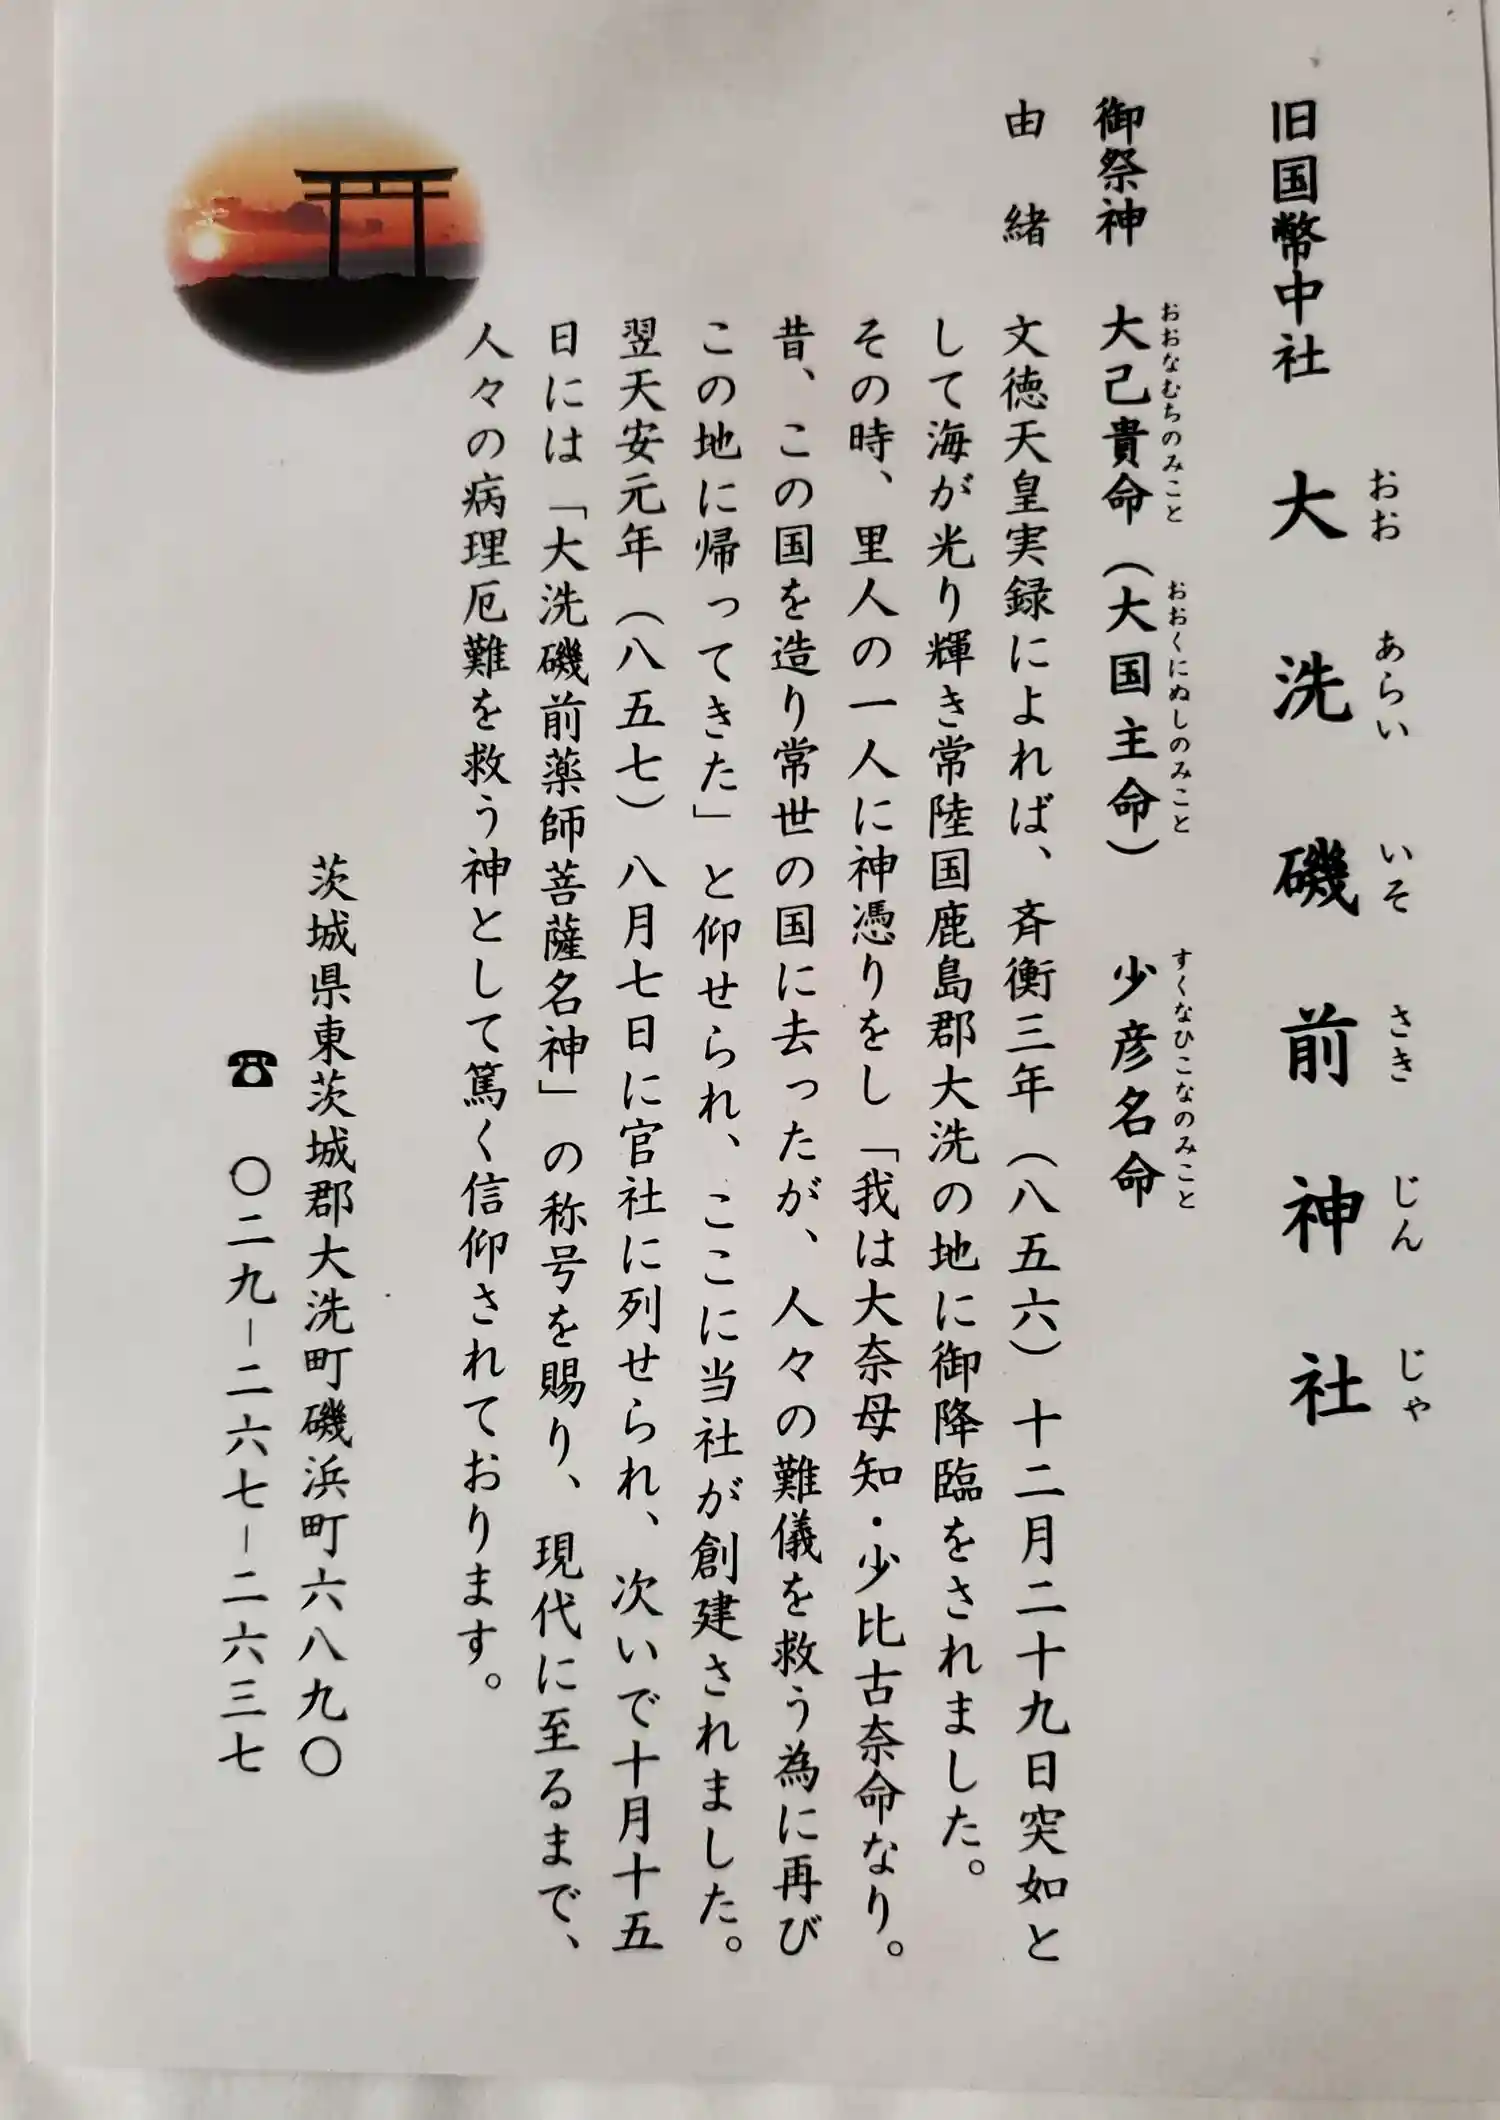 旧国幣中社 大洗磯前神社
おお あらい いそ さき じん じゃ
御祭神 大己貴命(大国主命) 少彦名命
おおなむちのみこと おおくにぬしのみこと すくなひこなのみこと
由緒 文徳天皇実録によれば、斉衡三年(八五六)十二月二十九日突如と
して海が光り輝き常陸国鹿島郡大洗の地に御降臨をされました。
その時、里人の一人に神憑りをし「我は大奈母知・少比古奈命なり。
昔、この国を造り常世の国に去ったが、人々の難儀を救う為に再び
この地に帰ってきた」と仰せられ、ここに当社が創建されました。
翌天安元年(八五七)八月七日に官社に列せられ、次いで十月十五
日には「大洗磯前薬師菩薩名神」の称号を賜り、現代に至るまで、
人々の病理厄難を救う神として篤く信仰されております。
茨城県東茨城郡大洗町磯浜町六八九〇
☎ 〇二九-二六七-二六三七